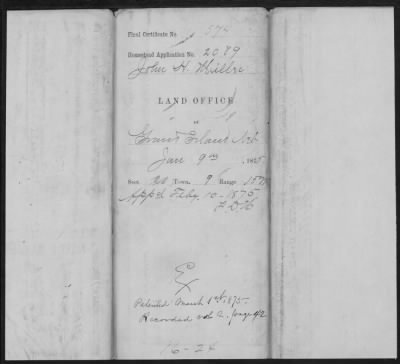 Final Certificate No. 574
Homestead Application No. 2089
John H. Miller
LAND OFFICE
AT
Grand Island Neb
Jan 9th, 1875
Sect. 20 Town. 9 Range
App'd Feby 10-1875
Ex
Patented March 1st 1875.
Recorded vol 2. page 42